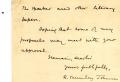 The Theatre and other literary
topics.
Hoping that some of my
proposals may meet with your
approval.
I remain, Sir,
yours faithfully,